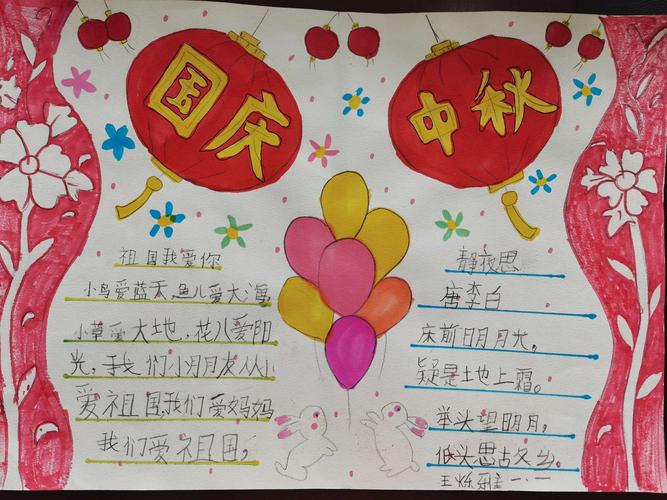 国庆
中秋
祖国我爱你
小鸟爱蓝天,鱼儿爱大海
小草爱大地,花儿爱阳
光,我们小朋友从小
爱祖国我们爱妈妈
我们爱祖国,
静夜思
唐李白
床前明月光,
疑是地上霜。
举头望明月,
低头思故乡。
王烁雅 一.一